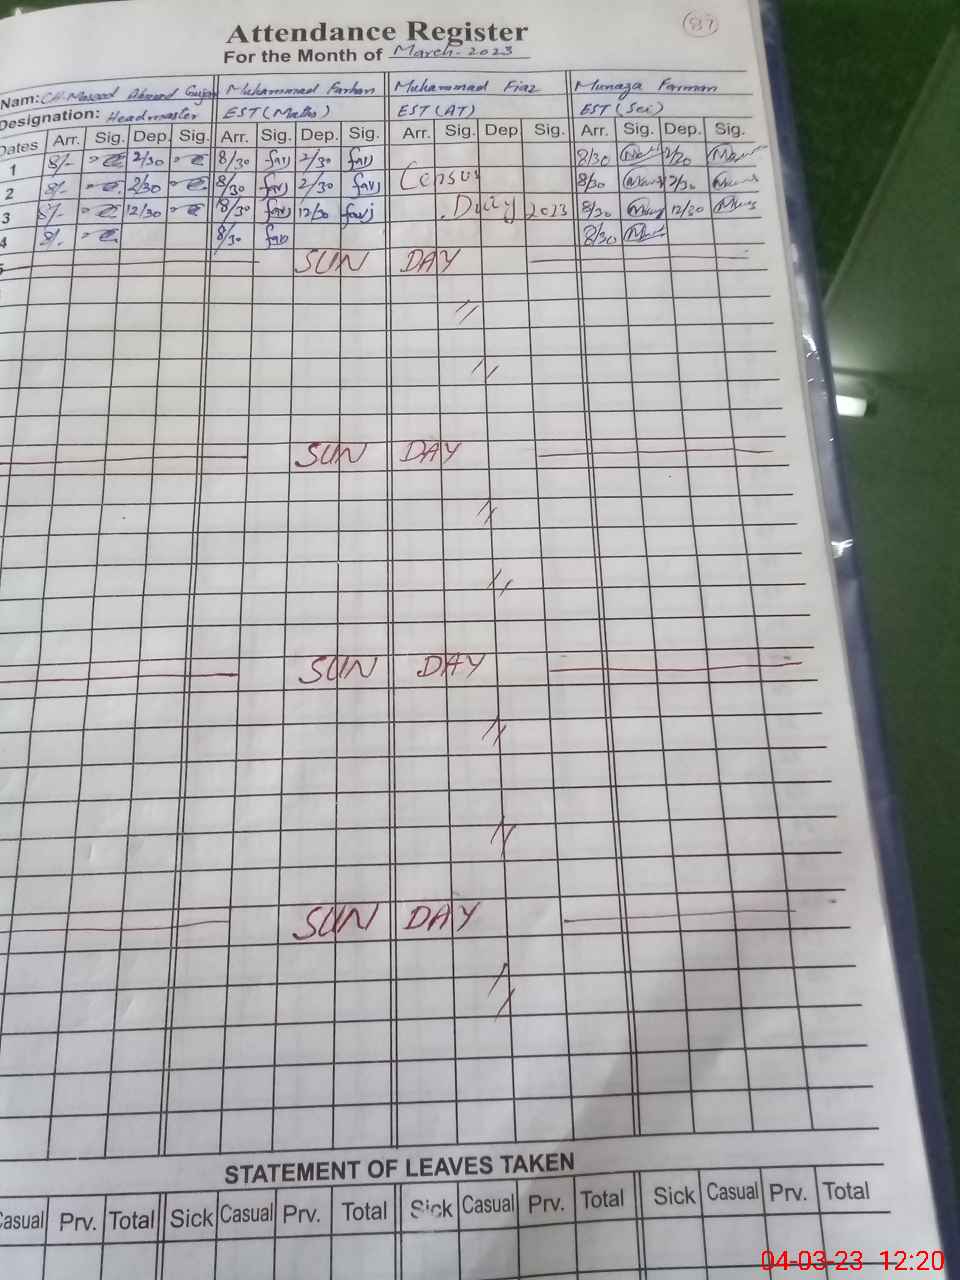 87
Attendance Register
For the Month of March-2023
Nam: CH-Masood Ahmad Gujar Muhammad Farhan Muhammad Fiaz Munaza Farman
Designation: Headmaster EST (Maths) EST (AT) EST (Sci)
Dates Arr. Sig. Dep. Sig. Arr. Sig. Dep. Sig. Arr. Sig. Dep Sig. Arr. Sig. Dep. Sig.
1 8/- 2/30 8/30 farj 2/30 farj 8/30 2/30
2 8/- 2/30 8/30 farj 2/30 farj Census 8/30 2/30
3 8/- 12/30 8/30 farj 12/30 farj Duty 2023 8/30 12/30
4 8/- 8/30 8/30
5 SUN DAY
SUN DAY
SUN DAY
SUN DAY
STATEMENT OF LEAVES TAKEN
Casual Prv. Total Sick Casual Prv. Total Sick Casual Prv. Total Sick Casual Prv. Total
04-03-23 12:20